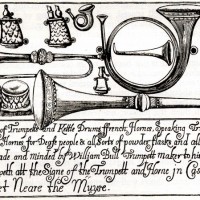 of Trumpetts and Kettle Drums ffrench Hornes, Speaking Tr
Hornes for Deafe people & all Sorts of powder flasks and all
ade and minded by William Bull Trumpett maker to his
peth att the Signe of the Trumpett and Horne in Cas
et Neare the